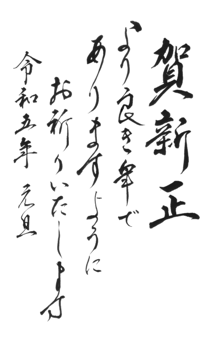 賀新正
より良き年で
ありますように
お祈りいたします
令和五年 元旦